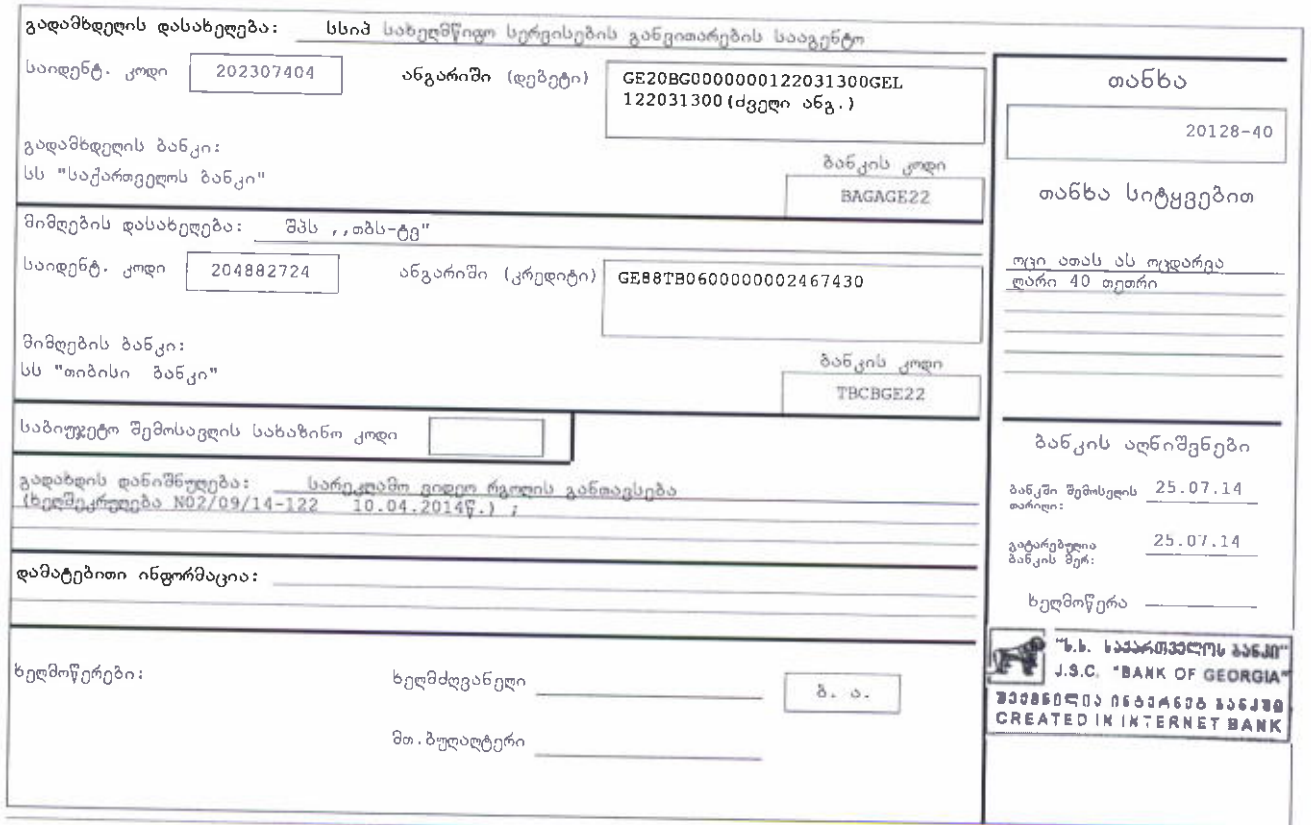 გადამხდელის დასახელება: სსიპ სახელმწიფო სერვისების განვითარების სააგენტო
საიდენტ. კოდი 202307404 ანგარიში (დებეტი) GE20BG0000000122031300GEL
122031300(ძველი ანგ.)
გადამხდელის ბანკი:
სს "საქართველოს ბანკი"
ბანკის კოდი
BAGAGE22
მიმღების დასახელება: შპს ,,თბს-ტვ"
საიდენტ. კოდი 204882724 ანგარიში (კრედიტი) GE88TB0600000002467430
მიმღების ბანკი:
სს "თიბისი ბანკი"
ბანკის კოდი
TBCBGE22
საბიუჯეტო შემოსავლის სახაზინო კოდი
გადახდის დანიშნულება: სარეკლამო ვიდეო რგოლის განთავსება
(ხელშეკრულება N02/09/14-122 10.04.2014წ.) ;
დამატებითი ინფორმაცია:
ხელმოწერები: ხელმძღვანელი
ბ. ა.
მთ.ბუღალტერი
თანხა
20128-40
თანხა სიტყვებით
ოცი ათას ას ოცდარვა
ლარი 40 თეთრი
ბანკის აღნიშვნები
ბანკში შემოსვლის 25.07.14
თარიღი:
გატარებულია 25.07.14
ბანკის მერ:
ხელმოწერა
"ს.ს. საქართველოს ბანკი"
J.S.C. "BANK OF GEORGIA"
შექმნილია ინტერნეტ ბანკში
CREATED IN INTERNET BANK